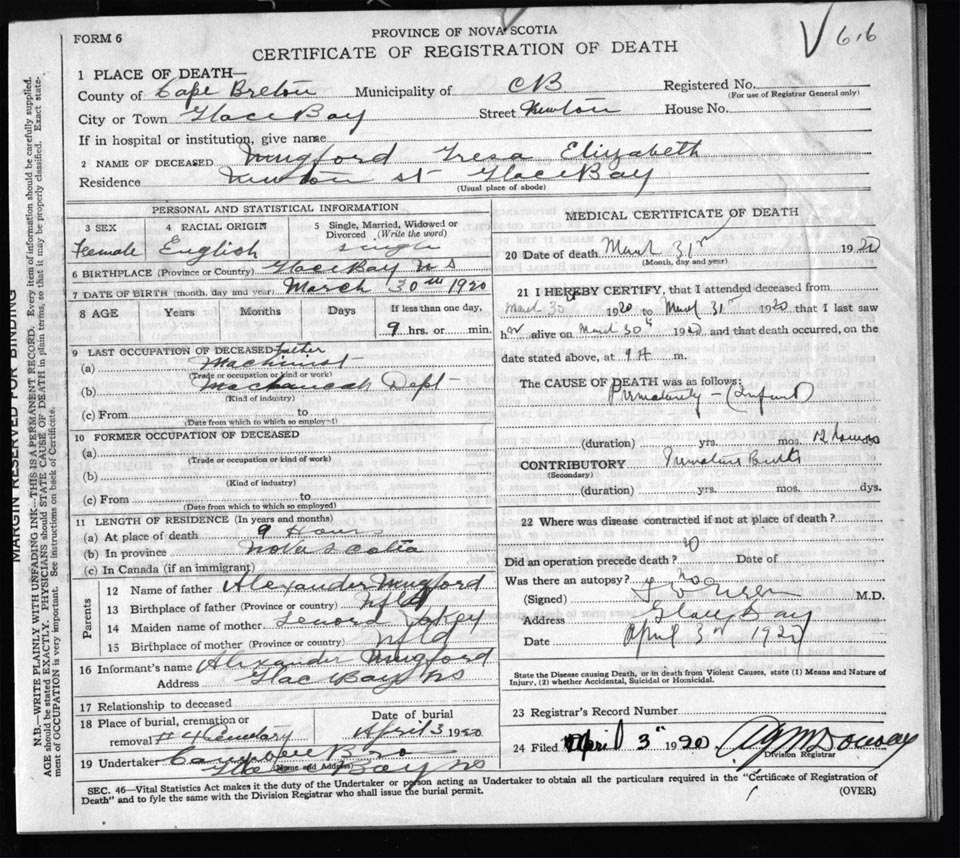 FORM 6
PROVINCE OF NOVA SCOTIA
CERTIFICATE OF REGISTRATION OF DEATH
V 616
MARGIN RESERVED FOR BINDING
N.B.—WRITE PLAINLY WITH UNFADING INK—THIS IS A PERMANENT RECORD. Every item of information should be carefully supplied.
AGE should be stated EXACTLY. PHYSICIANS should STATE CAUSE OF DEATH in plain terms, so that it may be properly classified. Exact state-
ment of OCCUPATION is very important. See instructions on back of Certificate.
1 PLACE OF DEATH—
County of Cape Breton Municipality of CB Registered No.
(For use of Registrar General only)
City or Town Glace Bay Street Newton House No.
If in hospital or institution, give name
2 NAME OF DECEASED Mugford Tresa Elizabeth
Residence Newton st Glace Bay
(Usual place of abode)
PERSONAL AND STATISTICAL INFORMATION
3 SEX 4 RACIAL ORIGIN 5 Single, Married, Widowed or
Divorced (Write the word)
Female English single
6 BIRTHPLACE (Province or Country) Glace Bay NS
7 DATE OF BIRTH (month, day and year) March 30th 1920
8 AGE Years Months Days If less than one day,
9 hrs. or min.
9 LAST OCCUPATION OF DECEASED Father
(a) Machinist
(Trade or occupation or kind or work)
(b) Mechanical Dept
(Kind of industry)
(c) From to
(Date from which to which so employed)
10 FORMER OCCUPATION OF DECEASED
(a)
(Trade or occupation or kind of work)
(b)
(Kind of industry)
(c) From to
(Date from which to which so employed)
11 LENGTH OF RESIDENCE (In years and months)
(a) At place of death 9 Hours
(b) In province Nova Scotia
(c) In Canada (if an immigrant)
Parents
12 Name of father Alexander Mugford
13 Birthplace of father (Province or country) Nfld
14 Maiden name of mother
15 Birthplace of mother (Province or country) Nfld
16 Informant's name Alexander Mugford
Address Glace Bay NS
17 Relationship to deceased
18 Place of burial, cremation or Date of burial
removal # 4 Cemetary April 3 1920
19 Undertaker
Name and Address
Glace Bay NS
MEDICAL CERTIFICATE OF DEATH
20 Date of death March 31st 1920
(Month, day and year)
21 I HEREBY CERTIFY, that I attended deceased from
March 30 1920 to March 31st 1920 that I last saw
her alive on March 30th 1920 and that death occurred, on the
date stated above, at 9 A m.
The CAUSE OF DEATH was as follows:
Prematurity - (Infant)
(duration) yrs. mos. 12 hours
CONTRIBUTORY Premature Birth
(Secondary)
(duration) yrs. mos. dys.
22 Where was disease contracted if not at place of death?
Did an operation precede death? Date of
Was there an autopsy? no
(Signed) M.D.
Address Glace Bay
Date April 3rd 1920
State the Disease causing Death, or in death from Violent Causes, state (1) Means and Nature of
Injury, (2) whether Accidental, Suicidal or Homicidal.
23 Registrar's Record Number
24 Filed April 3rd 1920
Division Registrar
SEC. 46—Vital Statistics Act makes it the duty of the Undertaker or person acting as Undertaker to obtain all the particulars required in the "Certificate of Registration of
Death" and to fyle the same with the Division Registrar who shall issue the burial permit.
(OVER)